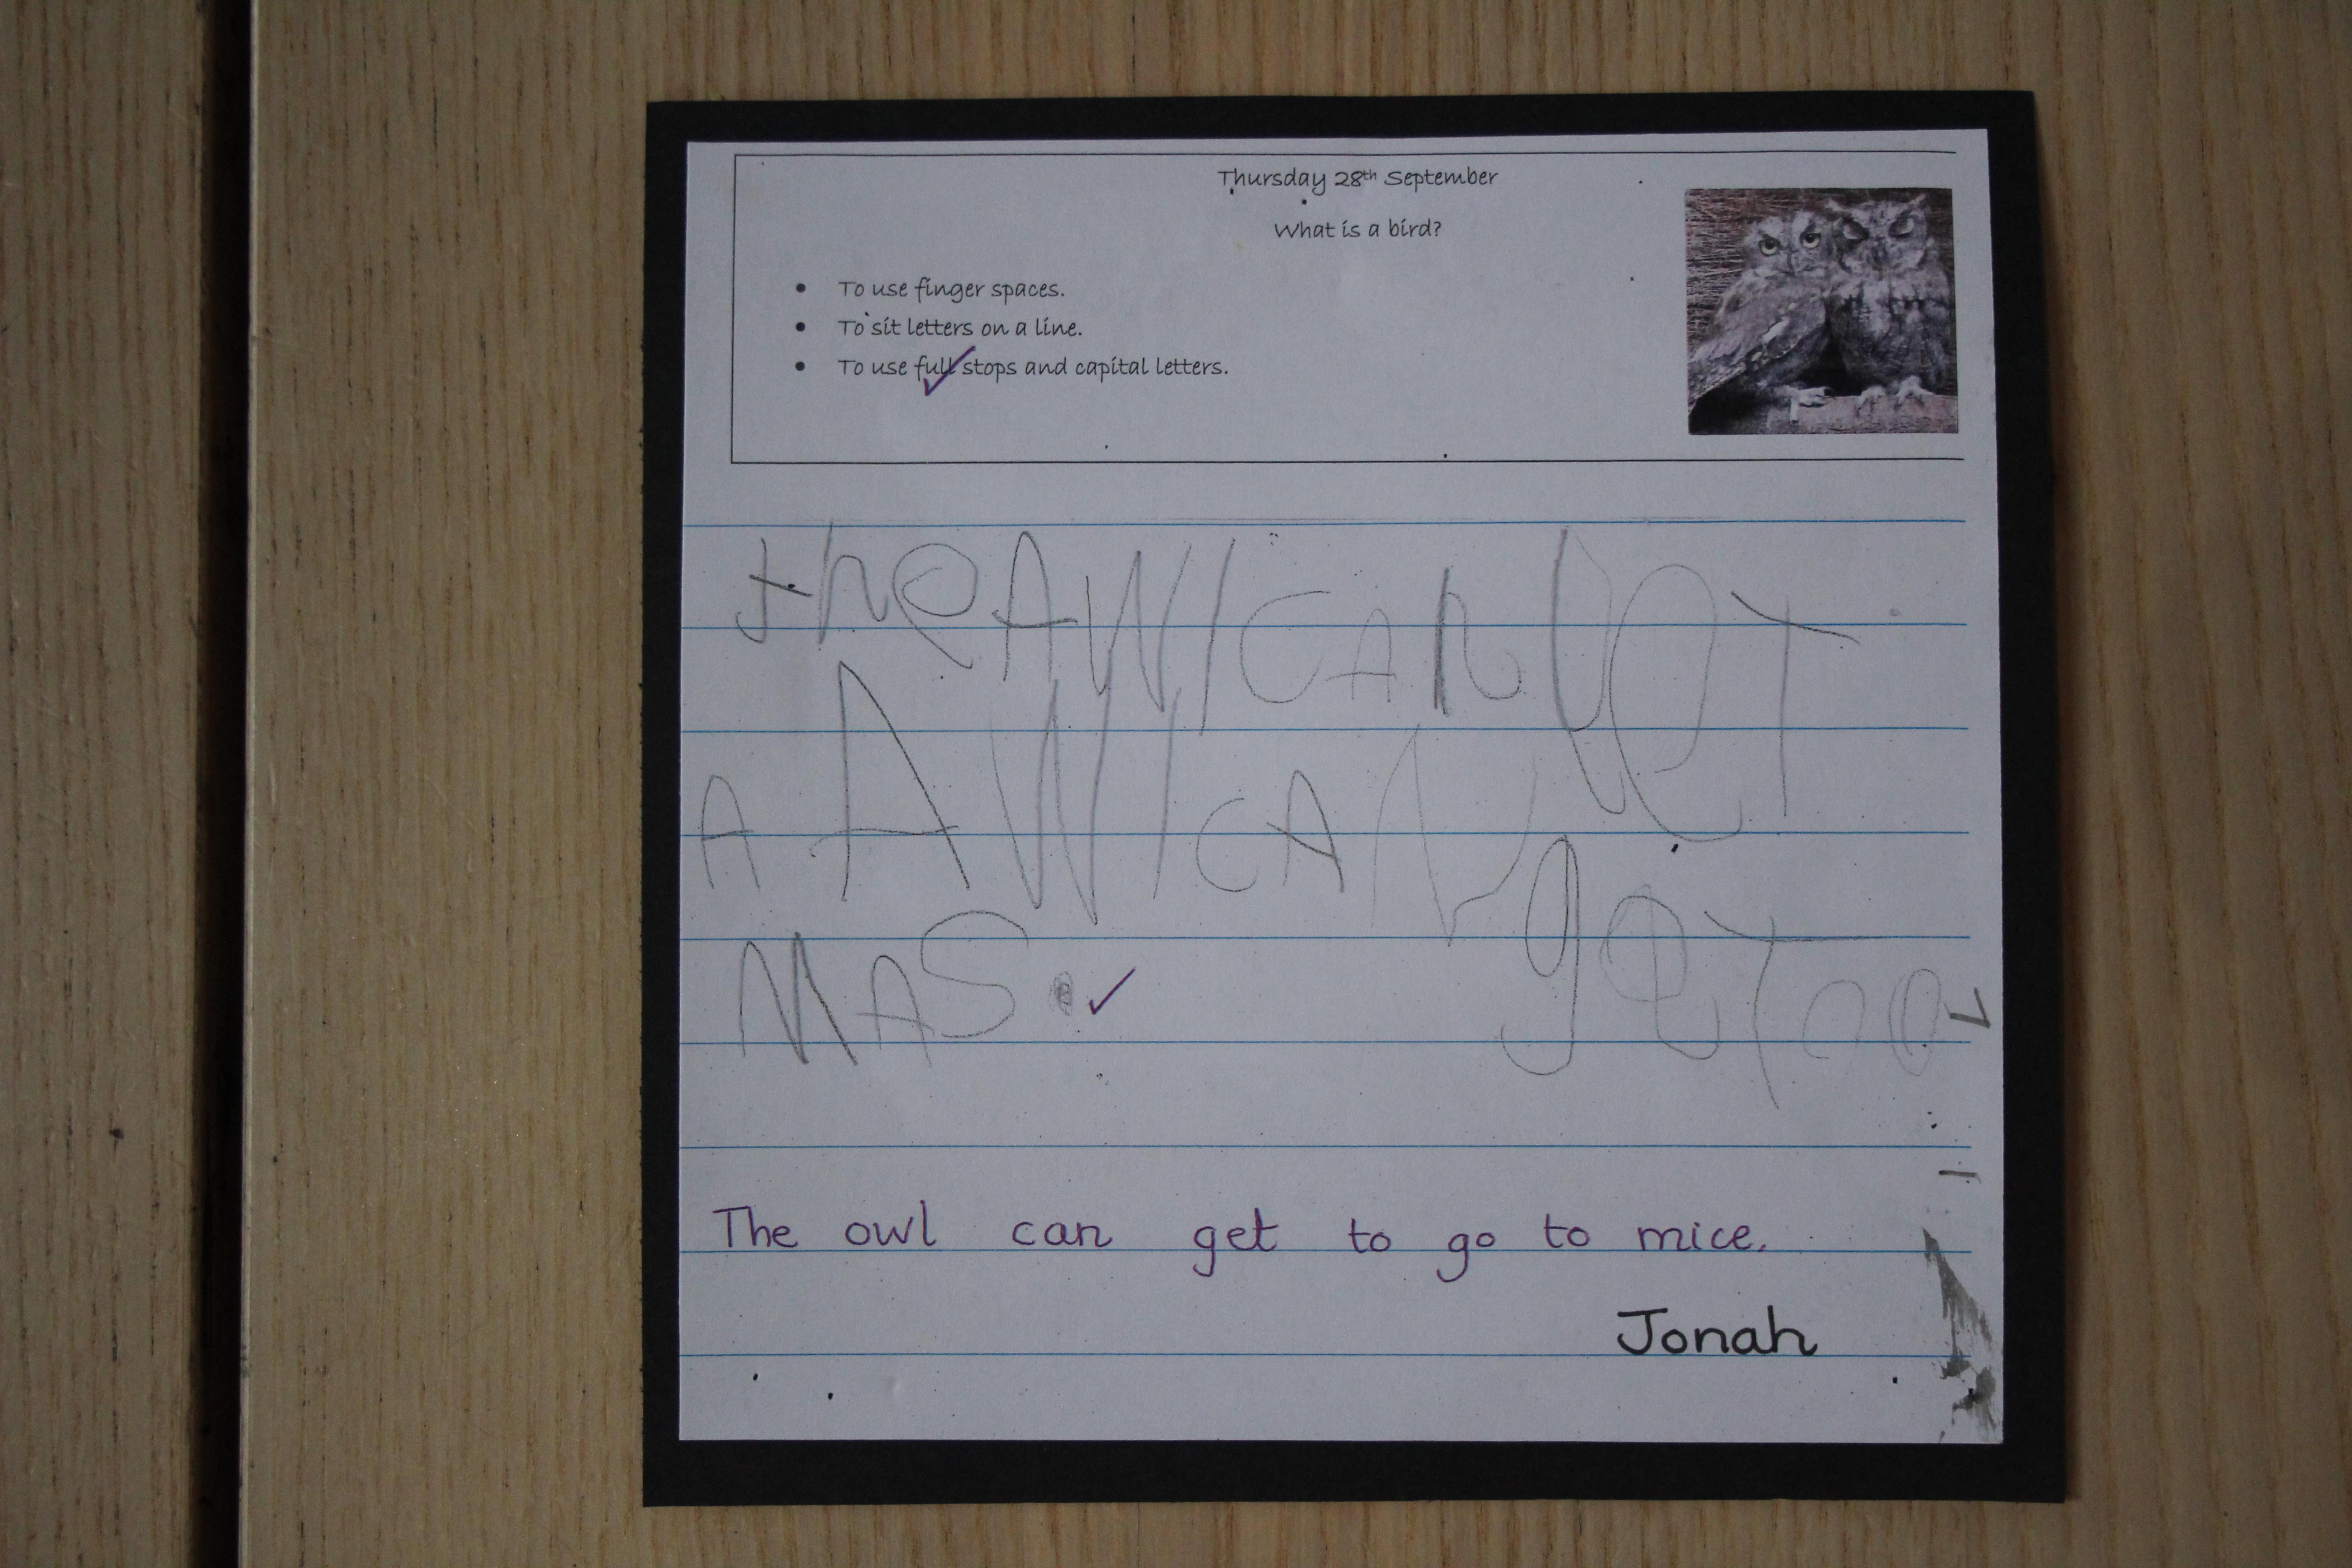 Thursday 28th September
What is a bird?
• To use finger spaces.
• To sit letters on a line.
• To use full stops and capital letters.
the AWl CAN
A AWl CAN get
MAS.
The owl can get to go to mice.
Jonah